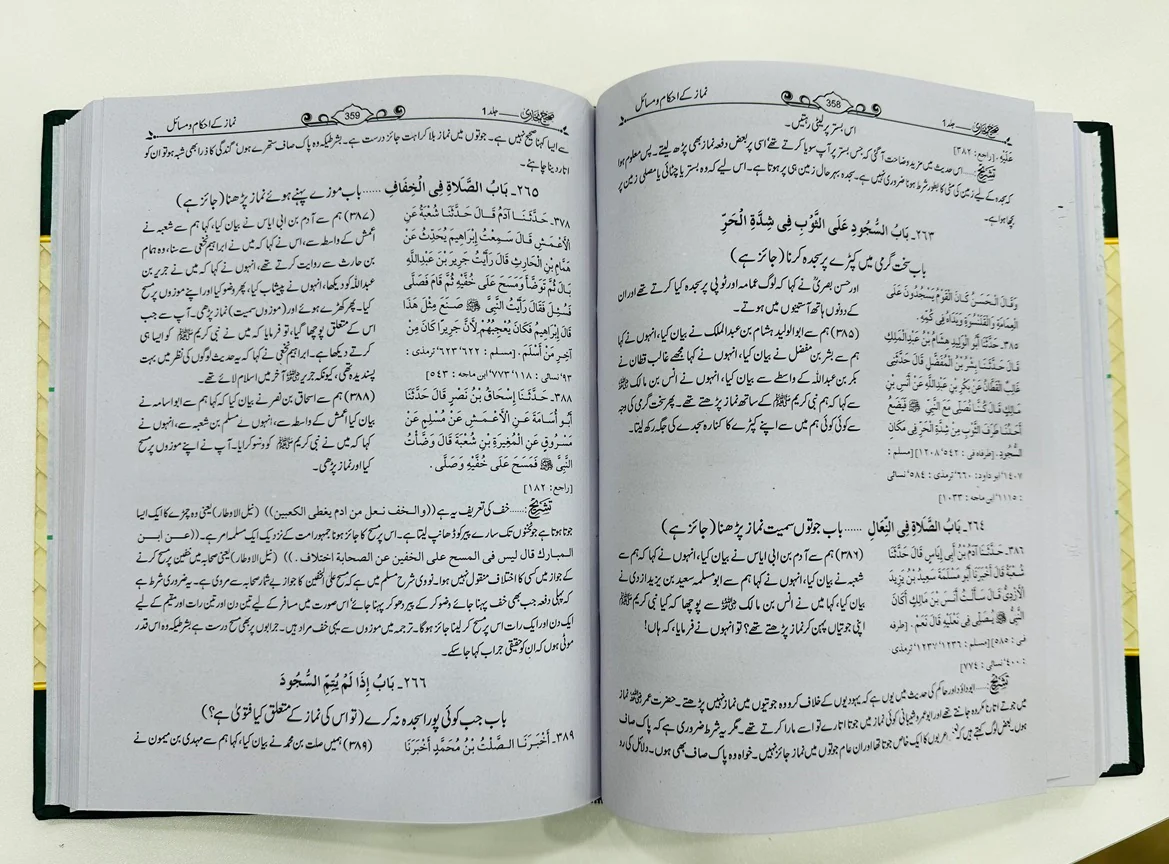 نماز کے احکام و مسائل
358
صحیح بخاری جلد 1
عَلَيْهِ. [راجع: ٣٨٢]
اس بستر پر لیٹی رہتیں۔
تشریح: ..... اس حدیث میں مزید وضاحت آگئی کہ جس بستر پر آپ سویا کرتے تھے اسی پر بعض دفعہ نماز بھی پڑھ لیتے۔ پس معلوم ہوا
کہ سجدہ کے لیے زمین کی مٹی کا بطور شرط ہونا ضروری نہیں ہے۔ سجدہ بہر حال زمین ہی پر ہوتا ہے۔ اس لیے کہ وہ بستر یا چٹائی یا مصلی زمین پر
بچھا ہوا ہے۔
٢٦٣۔ بَابُ السُّجُودِ عَلَى الثَّوْبِ فِي شِدَّةِ الْحَرِّ
باب سخت گرمی میں کپڑے پر سجدہ کرنا (جائز ہے)
وَقَالَ الْحَسَنُ كَانَ الْقَوْمُ يَسْجُدُونَ عَلَى
الْعِمَامَةِ وَالْقَلَنْسُوَةِ وَيَدَاهُ فِي كُمِّهِ.
٣٨٥۔ حَدَّثَنَا أَبُو الْوَلِيدِ هِشَامُ بْنُ عَبْدِ الْمَلِكِ
قَالَ حَدَّثَنَا بِشْرُ بْنُ الْمُفَضَّلِ قَالَ حَدَّثَنِي
غَالِبٌ الْقَطَّانُ عَنْ بَكْرِ بْنِ عَبْدِ اللَّهِ عَنْ أَنَسِ بْنِ
مَالِكٍ قَالَ كُنَّا نُصَلِّي مَعَ النَّبِيِّ ﷺ فَيَضَعُ
أَحَدُنَا طَرَفَ الثَّوْبِ مِنْ شِدَّةِ الْحَرِّ فِي مَكَانِ
السُّجُودِ. [طرفاه في: ٥٤٢، ١٢٠٨] [مسلم:
١٤٠٧؛ ابو داود: ٦٦٠؛ ترمذی: ٥٨٤؛ نسائی:
١١١٥؛ ابن ماجه: ١٠٣٣]
اور حسن بصریؒ نے کہا کہ لوگ عمامہ اور ٹوپی پر سجدہ کیا کرتے تھے اور ان
کے دونوں ہاتھ آستینوں میں ہوتے۔
(٣٨٥) ہم سے ابوالولید ہشام بن عبدالملک نے بیان کیا، انہوں نے کہا
ہم سے بشر بن مفضل نے بیان کیا، انہوں نے کہا مجھے غالب قطان نے
بکر بن عبداللہ کے واسطے سے بیان کیا، انہوں نے انس بن مالک رضی اللہ عنہ
سے کہا کہ ہم نبی کریم ﷺ کے ساتھ نماز پڑھتے تھے۔ پھر سخت گرمی کی وجہ
سے کوئی کوئی ہم میں سے اپنے کپڑے کا کنارہ سجدے کی جگہ رکھ لیتا۔
٢٦٤۔ بَابُ الصَّلَاةِ فِي النِّعَالِ ..... باب جوتوں سمیت نماز پڑھنا (جائز ہے)
٣٨٦۔ حَدَّثَنَا آدَمُ بْنُ أَبِي إِيَاسٍ قَالَ حَدَّثَنَا
شُعْبَةُ قَالَ أَخْبَرَنَا أَبُو مَسْلَمَةَ سَعِيدُ بْنُ يَزِيدَ
الْأَزْدِيُّ قَالَ سَأَلْتُ أَنَسَ بْنَ مَالِكٍ أَكَانَ
النَّبِيُّ ﷺ يُصَلِّي فِي نَعْلَيْهِ قَالَ نَعَمْ. [طرفه
في: ٥٨٥٠] [مسلم: ١٢٣٦، ١٢٣٧؛ ترمذی
: ٤٠٠؛ نسائی: ٧٧٤]
(٣٨٦) ہم سے آدم بن ابی ایاس نے بیان کیا، انہوں نے کہا کہ ہم سے
شعبہ نے بیان کیا، انہوں نے کہا ہم سے ابو مسلمہ سعید بن یزید ازدی نے
بیان کیا، کہا میں نے انس بن مالک رضی اللہ عنہ سے پوچھا کہ کیا نبی کریم ﷺ
اپنی جوتیاں پہن کر نماز پڑھتے تھے؟ تو انہوں نے فرمایا، کہ ہاں!
تشریح: ..... ابوداؤد اور حاکم کی حدیث میں یوں ہے کہ یہودیوں کے خلاف کرو وہ جوتیوں میں نماز نہیں پڑھتے۔ حضرت عمر رضی اللہ عنہ نماز
میں جوتے اتارنا مکروہ جانتے تھے اور ابو عمرو شیبانی کوئی نماز میں جوتا اتارے تو اسے مارا کرتے تھے۔ مگر یہ شرط ضروری ہے کہ پاک صاف
ہوں۔ بعض لوگ کہتے ہیں کہ عربوں کا ایک خاص جوتا تھا اور ان عام جوتوں میں نماز جائز نہیں۔ خواہ وہ پاک صاف بھی ہوں۔ دلائل کی رو
نماز کے احکام و مسائل
359
صحیح بخاری جلد 1
سے ایسا کہنا صحیح نہیں ہے۔ جوتوں میں نماز بلا کراہت جائز درست ہے۔ بشرطیکہ وہ پاک صاف ستھرے ہوں، گندگی کا ذرا بھی شبہ ہو تو ان کو
اتار دینا چاہئے۔
٢٦٥۔ بَابُ الصَّلَاةِ فِي الْخِفَافِ ..... باب موزے پہنے ہوئے نماز پڑھنا (جائز ہے)
٣٧٨۔ حَدَّثَنَا آدَمُ قَالَ حَدَّثَنَا شُعْبَةُ عَنِ
الْأَعْمَشِ قَالَ سَمِعْتُ إِبْرَاهِيمَ يُحَدِّثُ عَنْ
هَمَّامِ بْنِ الْحَارِثِ قَالَ رَأَيْتُ جَرِيرَ بْنَ عَبْدِ اللَّهِ
بَالَ ثُمَّ تَوَضَّأَ وَمَسَحَ عَلَى خُفَّيْهِ ثُمَّ قَامَ فَصَلَّى
فَسُئِلَ فَقَالَ رَأَيْتُ النَّبِيَّ ﷺ صَنَعَ مِثْلَ هَذَا
قَالَ إِبْرَاهِيمُ فَكَانَ يُعْجِبُهُمْ لِأَنَّ جَرِيرًا كَانَ مِنْ
آخِرِ مَنْ أَسْلَمَ. [مسلم: ٦٢٢، ٦٢٣؛ ترمذی:
٩٣؛ نسائی: ١١٨، ٧٧٣؛ ابن ماجه: ٥٤٣]
٣٨٨۔ حَدَّثَنَا إِسْحَاقُ بْنُ نَصْرٍ قَالَ حَدَّثَنَا
أَبُو أُسَامَةَ عَنِ الْأَعْمَشِ عَنْ مُسْلِمٍ عَنْ
مَسْرُوقٍ عَنِ الْمُغِيرَةِ بْنِ شُعْبَةَ قَالَ وَضَّأْتُ
النَّبِيَّ ﷺ فَمَسَحَ عَلَى خُفَّيْهِ وَصَلَّى.
[راجع: ١٨٢]
(٣٨٧) ہم سے آدم بن ابی ایاس نے بیان کیا، کہا ہم سے شعبہ نے
اعمش کے واسطہ سے، اس نے کہا کہ میں نے ابراہیم نخعی سے سنا، وہ ہمام
بن حارث سے روایت کرتے تھے، انہوں نے کہا کہ میں نے جریر بن
عبداللہ کو دیکھا، انہوں نے پیشاب کیا، پھر وضو کیا اور اپنے موزوں پر مسح
کیا۔ پھر کھڑے ہوئے اور (موزوں سمیت) نماز پڑھی۔ آپ سے جب
اس کے متعلق پوچھا گیا، تو فرمایا کہ میں نے نبی کریم ﷺ کو ایسا ہی
کرتے دیکھا ہے۔ ابراہیم نخعی نے کہا کہ یہ حدیث لوگوں کی نظر میں بہت
پسندیدہ تھی، کیونکہ جریر رضی اللہ عنہ آخر میں اسلام لائے تھے۔
(٣٨٨) ہم سے اسحاق بن نصر نے بیان کیا کہ کہا ہم سے ابو اسامہ نے
بیان کیا اعمش کے واسطہ سے، انہوں نے مسلم بن شعبہ سے، انہوں نے
کہا کہ میں نے نبی کریم ﷺ کو وضو کرایا۔ آپ نے اپنے موزوں پر مسح
کیا اور نماز پڑھی۔
تشریح: ..... خف کی تعریف یہ ہے ((والخف نعل من ادم يغطى الكعبين)) (نیل الاوطار) یعنی وہ چمڑے کا ایک ایسا
جوتا ہوتا ہے جو ٹخنوں تک سارے پیر کو ڈھانپ لیتا ہے۔ اس پر مسح کا جائز ہونا جمہور امت کے نزدیک ایک مسلمہ امر ہے۔ ((عن ابن
المبارك قال ليس فى المسح على الخفين عن الصحابة اختلاف.)) (نیل الاوطار) یعنی صحابہ میں خفین پر مسح کرنے
کے جواز میں کسی کا اختلاف منقول نہیں ہوا۔ نووی شرح مسلم میں ہے کہ مسح علی الخفین کا جواز بے شمار صحابہ سے مروی ہے۔ یہ ضروری شرط ہے
کہ پہلی دفعہ جب بھی خف پہنا جائے وضو کر کے پیر دھو کر پہنا جائے، اس صورت میں مسافر کے لیے تین دن اور تین رات اور مقیم کے لیے
ایک دن اور ایک رات اس پر مسح کر لینا جائز ہوگا۔ ترجمہ میں موزوں سے یہی خف مراد ہیں۔ جرابوں پر بھی مسح درست ہے بشرطیکہ وہ اس قدر
موٹی ہوں کہ ان کو حقیقی جراب کہا جا سکے۔
٢٦٦۔ بَابُ إِذَا لَمْ يُتِمَّ السُّجُودَ
باب جب کوئی پورا سجدہ نہ کرے (تو اس کی نماز کے متعلق کیا فتویٰ ہے؟)
٣٨٩۔ أَخْبَرَنَا الصَّلْتُ بْنُ مُحَمَّدٍ أَخْبَرَنَا
(٣٨٩) ہمیں صلت بن محمد نے بیان کیا، کہا ہم سے مہدی بن میمون نے